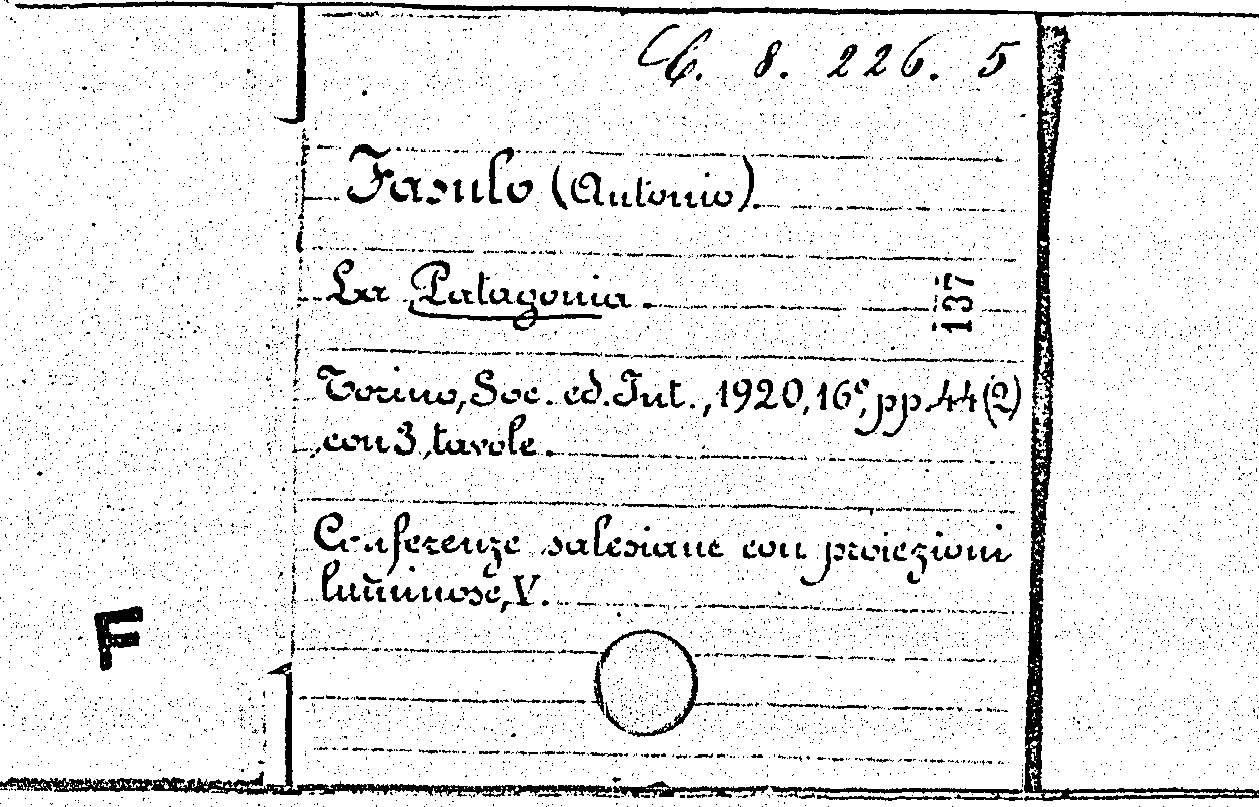 C. 8. 226. 5
Fasulo (Antonio).
La Patagonia.
137
Torino, Soc. ed. Int., 1920, 16º, pp. 44 (2)
con 3 tavole.
Conferenze salesiane con proiezioni
luminose, V.
F